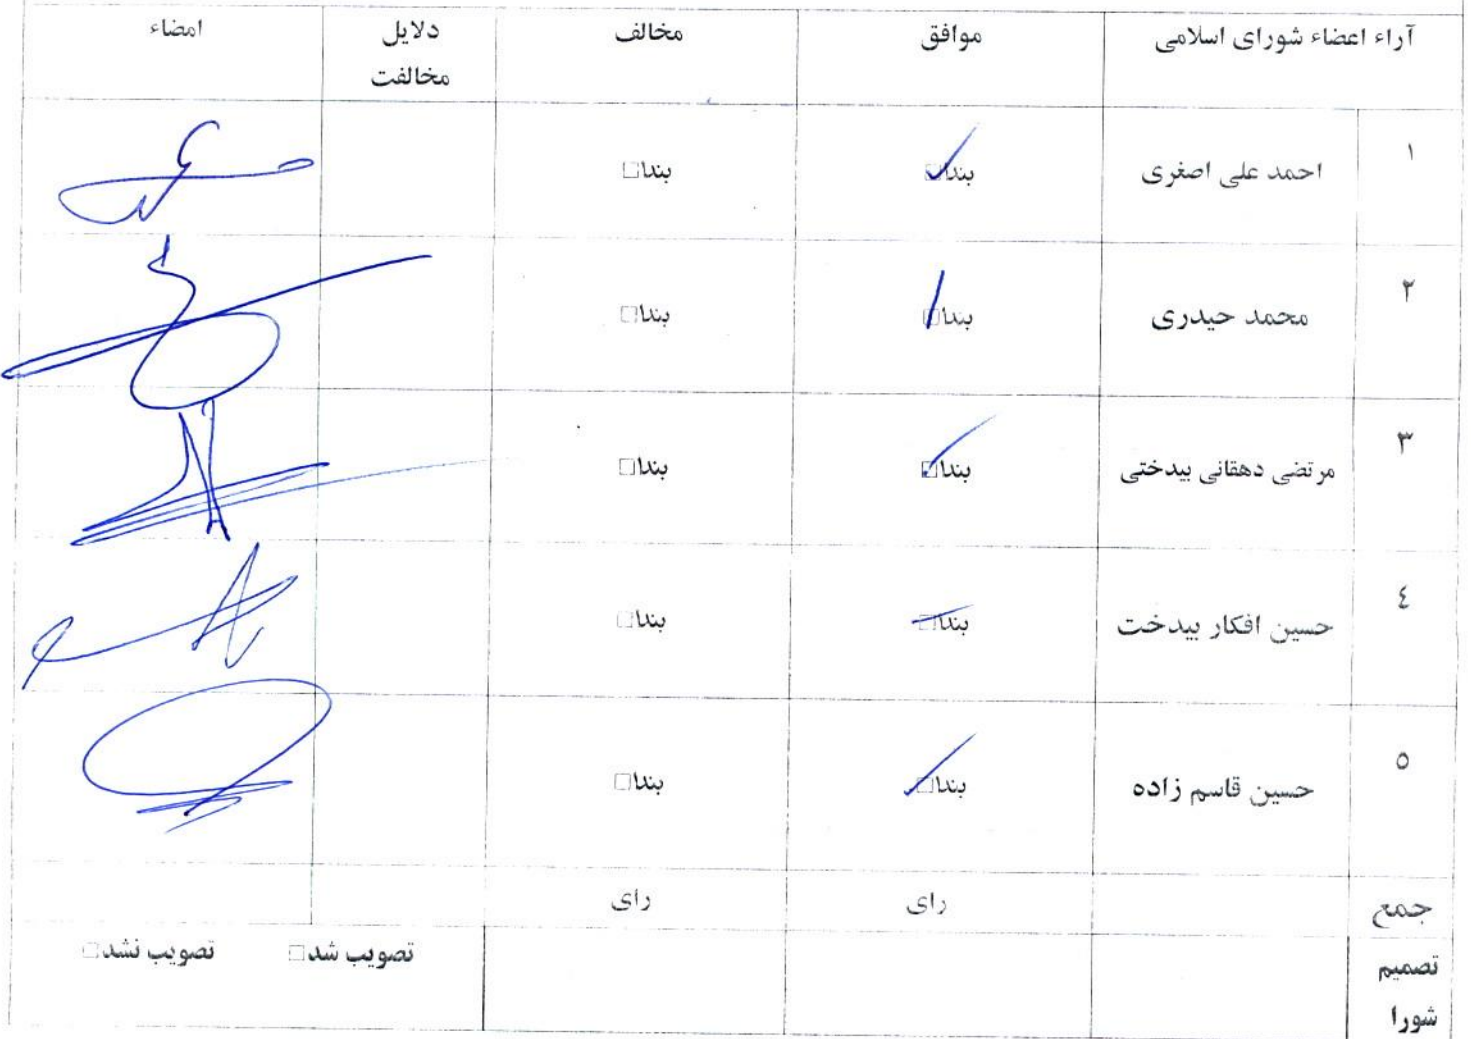 آراء اعضاء شورای اسلامی موافق مخالف دلایل مخالفت امضاء
۱ احمد علی اصغری بند۱□ بند۱□
۲ محمد حیدری بند۱□ بند۱□
۳ مرتضی دهقانی بیدختی بند۱□ بند۱□
٤ حسین افکار بیدخت بند۱□ بند۱□
٥ حسین قاسم زاده بند۱□ بند۱□
جمع رای رای
تصمیم شورا تصویب شد□ تصویب نشد□